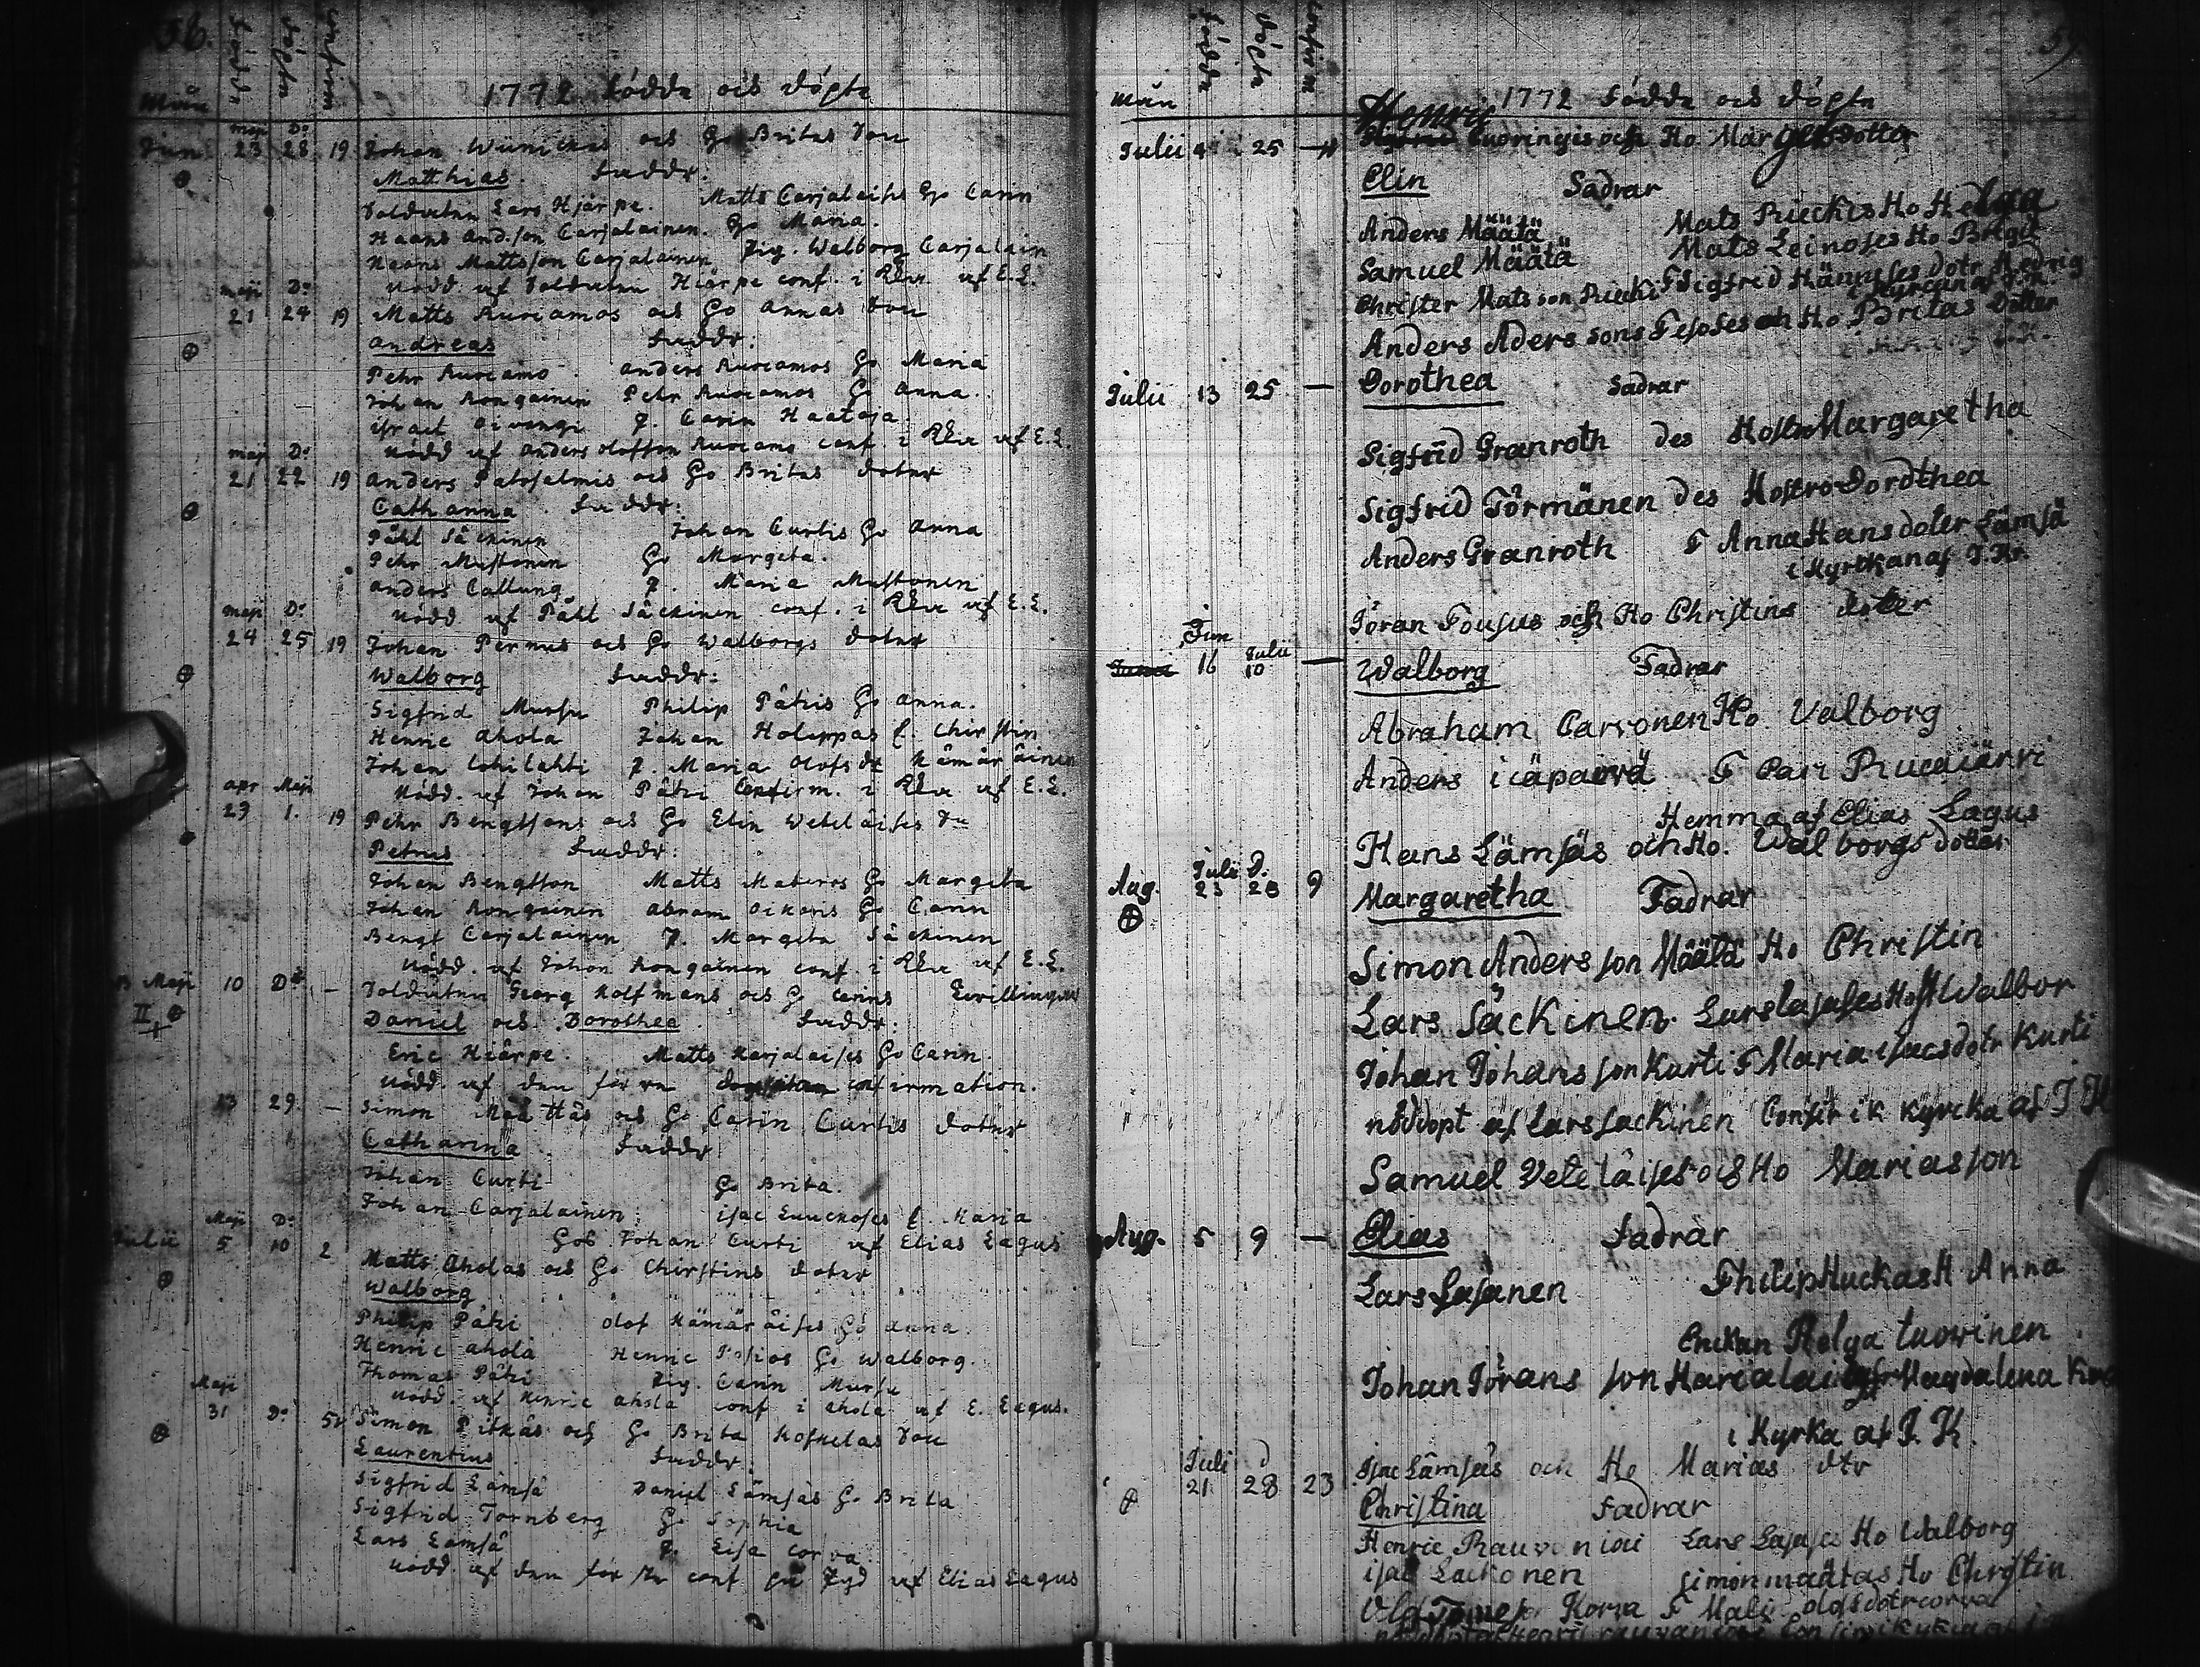 56.
födde döpte confirm
Mån 1772 födde och döpte
maji Do
Jun: 23 28 19 Johan Wünickas och Ho Britas Son
Matthias. faddr:
Soldaten Lars Hjärpe. Matts Carjalaises Ho Carin
Haans And.son Carjalainen. Ho Maria.
Haans Mattsson Carjalainen Pig. Walborg Carjalain
nödd. af Soldaten Hiärpe conf. i Kkn af E.L.
maji Do
21 24 19 Matts Kurcamos och Ho Annas Son
Andreas faddr:
Pehr Kurcamo. Anders Kurcamos Ho Maria
Johan Kongainen Pehr Kurcamos Ho Anna.
Israel P. Carin Haataja
nödd af Anders Olofsson Kurcamo conf. i Kkn af E.L.
maji Do
21 22 19 Anders Patosalmis och Ho Britas dotter
Catharina. faddr:
Påhl Säckinen Johan Curtis Ho Anna
Pehr Mustonen Ho Margeta.
Anders Callung P. Maria Mustonen
nödd af Påhl Säckinen conf. i Kkn af E.L.
maji Do
24 25 19 Johan Pernus och Ho Walborgs dotter
Walborg faddr:
Sigfrid Mursu Philip Pätzis Ho Anna.
Henric Ahola Johan Holappas f. Chirstin
Johan Lohilahti P. Maria Olofsdr Kämäräinen
nödd. af Johan Pätzi Confirm. i Kkn af E.L.
apr Maji
29 1. 19 Pehr Bengtsons och Ho Elin Weteläises Son
Petrus faddr:
Johan Bengtsson Matts Materos Ho Margeta
Johan Kongainen Abram Oikaris Ho Carin
Bengt Carjalainen P. Margeta Säckinen
nödd. af Johan Kongainen conf. i Kkn af E.L.
Maji 10 Do – Soldaten Georg Kolfmans och H Carins Twillingar
II Daniel och Dorothea. faddr:
Eric Hiärpe. Matts Karjalaises Ho Carin.
nödd. af den förra confirmation.
13 29. – Simon Määttäs och Ho Carin Curtis dotter
Catharina faddr
Johan Curti Ho Brita.
Johan Carjalainen: Isac Leuckoses f. Maria
Hos Johan Curti af Elias Lagus
Maji Do
Julii 5 10 2 Matts Aholas och Ho Chirstins dotter
Walborg
Philip Pätzi Olof Kämäräises Ho Anna.
Henric Ahola Henric Ho Walborg.
Thomas Pätzi Pig. Carin Mursu
nödd. af Henric Ahola conf i Ahola af E. Lagus.
Maji
31 Do Simon Pitkäs och Ho Brita Kofkelas Son
Laurentius faddr.
Sigfrid Lämsä Daniel Lämsäs Ho Brita
Sigfrid Tornberg Ho Sophia
Lars Lämsä P. Lisa Corva
nödd. af den förste conf af Elias Lagus
57
födde döpte confirm
Mån 1772 födde och döpte
Henric
Julii 4 25 – Tuoringis och Ho Margets dotter
Elin Fadrar
Anders Määtä Mats Rieckis Ho Helga
Samuel Määtä Mats Leinoses Ho Brigit
Christer Matsson Riecki F Sigfrid Hännises dotr Hedvig
i kyrckan af
Anders Aderssons Tesoses och Ho Britas Dotter
Julii 13 25 – Dorothea Fadrar
Sigfrid Granroth des Hostro Margaretha
Sigfrid Törmänen des Hostro Dordthea
Anders Granroth F Anna Hansdoter Lämsä
i Kyrckan af I. Kr.
Jöran Tousus och Ho Christins doter
Jun Julii
16 10 – Walborg Fadrar
Abraham Carvonen Ho Valborg
Anders i F Cari
Hemma af Elias Lagus
Hans Lämsäs och Ho. Walborgs dotter
Juli D.
Aug. 23 28 9 Margaretha Fadrar
Simon Andersson Määtä Ho Christin
Lars Säckinen. Lars Lasases Host Walbor
Johan Johansson Kurti F Maria Isacsdotr Kurti
nöddopt af Lars Sackinen Confir i K kyrcka af I K
Samuel Veteläises och Ho Marias son
Aug. 5 9 – Elias Fadrar
Lars Lasanen Philip Huckas H Anna
Enckan Helga Tuovinen
Johan Jörans son Karialai Magdalena
i Kyrka af I. K
Juli d
21 28 23 Isac Lämsäs och Ho Marias dtr
Christina Fadrar
Henric Lars Lasases Ho Walborg
Isac Lackonen Simon määtas Ho Christin
Korva F Mali olofsdotr corva